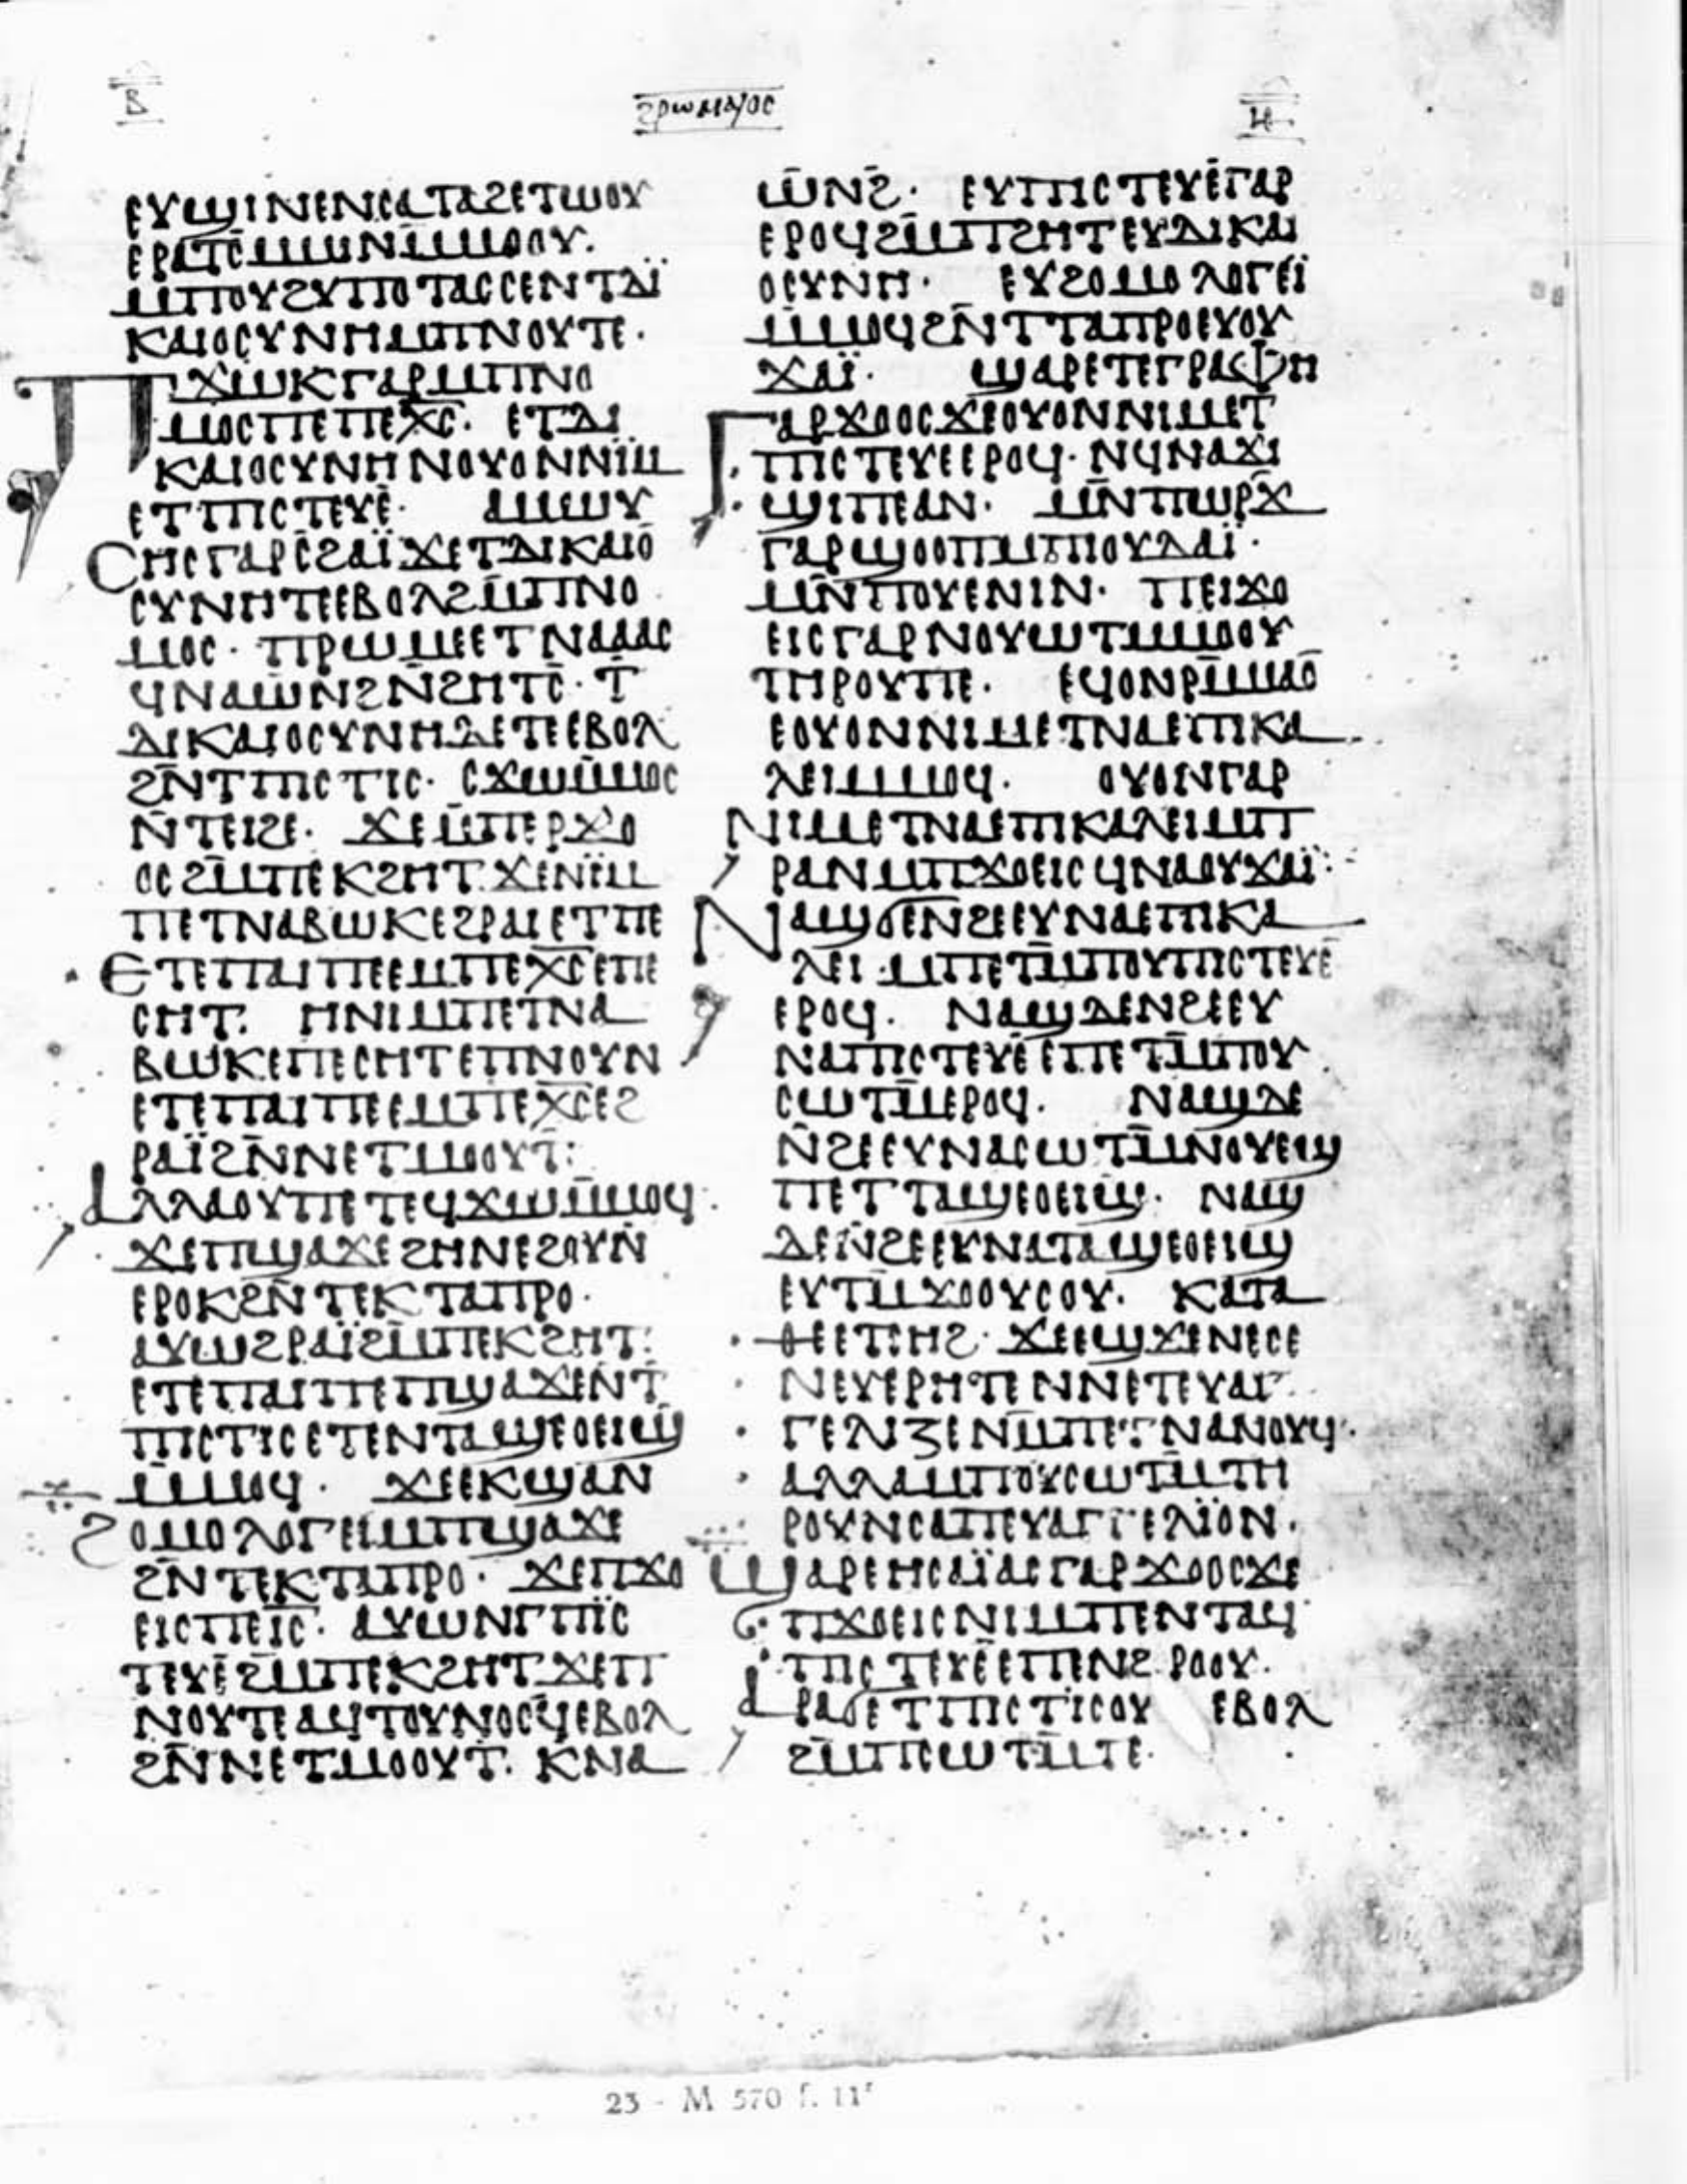 ⲃ̅ ϩⲣⲱⲙⲁⲓⲟⲥ ⲏ̅
ⲉⲩϣⲓⲛⲉⲛⲥⲁⲧⲁϩⲉⲧⲱⲟⲩ
ⲉⲣⲁⲧⲥ̄ⲙⲙⲓⲛⲙ̄ⲙⲟⲟⲩ.
ⲙⲡⲟⲩϩⲩⲡⲟⲧⲁⲥⲥⲉⲛⲧⲇⲓ̈
ⲕⲁⲓⲟⲥⲩⲛⲏⲙⲡⲛⲟⲩⲧⲉ.
ⲡϫⲱⲕⲅⲁⲣⲙⲡⲛⲟ
ⲙⲟⲥⲡⲉⲡⲉⲭ̅ⲥ̅. ⲉⲧⲇⲓ
ⲕⲁⲓⲟⲥⲩⲛⲏⲛⲟⲩⲟⲛⲛⲓⲙ
ⲉⲧⲡⲓⲥⲧⲉⲩⲉ̄. ⲙⲙⲱⲩ
ⲥⲏⲥⲅⲁⲣⲥ̄ϩⲁⲓ̈ϫⲉⲧⲇⲓⲕⲁⲓⲟ̄
ⲥⲩⲛⲏⲧⲉⲉⲃⲟⲗϩⲙ̄ⲡⲛⲟ
ⲙⲟⲥ. ⲡⲣⲱⲙⲉⲉⲧⲛⲁⲁⲁⲥ
ϥⲛⲁⲱⲛϩⲛ̄ϩⲏⲧⲥ̄. ⲧ̄
ⲇⲓⲕⲁⲓⲟⲥⲩⲛⲏⲇⲉⲧⲉⲉⲃⲟⲗ
ϩⲛ̄ⲧⲡⲓⲥⲧⲓⲥ. ⲥϫⲱⲙ̄ⲙⲟⲥ
ⲛ̄ⲧⲉⲓϩⲉ. ϫⲉⲙ̄ⲡⲉⲣϫⲟ
ⲟⲥϩⲙ̄ⲡⲉⲕϩⲏⲧ.ϫⲉⲛⲓ̈ⲙ
ⲡⲉⲧⲛⲁⲃⲱⲕⲉϩⲣⲁⲓⲉⲧⲡⲉ
ⲉⲧⲉⲡⲁⲓⲡⲉⲉⲙⲡⲉⲭ̅ⲥ̅ⲉⲡⲉ
ⲥⲏⲧ. ⲏⲛⲓⲙⲡⲉⲧⲛⲁ
ⲃⲱⲕⲉⲡⲉⲥⲏⲧⲉⲡⲛⲟⲩⲛ
ⲉⲧⲉⲡⲁⲓⲡⲉⲉⲙⲡⲉⲭ̅ⲥ̅ⲉϩ
ⲣⲁⲓ̈ϩⲛ̄ⲛⲉⲧⲙⲟⲟⲩⲧ̄:
ⲁⲗⲗⲁⲟⲩⲡⲉⲧⲉϥϫⲱⲙ̄ⲙⲟϥ.
ϫⲉⲡϣⲁϫⲉϩⲏⲛⲉϩⲟⲩⲛ̄
ⲉⲣⲟⲕϩⲛ̄ⲧⲉⲕⲧⲁⲡⲣⲟ.
ⲁⲩⲱϩⲣⲁⲓ̈ϩⲙ̄ⲡⲉⲕϩⲏⲧ:
ⲉⲧⲉⲡⲁⲓⲡⲉⲡϣⲁϫⲉⲛⲧ̄
ⲡⲓⲥⲧⲓⲥⲉⲧⲉⲛⲧⲁϣⲉⲟⲉⲓϣ
ⲙ̄ⲙⲟϥ. ϫⲉⲉⲕϣⲁⲛ
ϩⲟⲙⲟⲗⲟⲅⲉⲓⲙⲡϣⲁϫⲉ
ϩⲛ̄ⲧⲉⲕⲧⲁⲡⲣⲟ. ϫⲉⲡϫⲟ
ⲉⲓⲥⲡⲉⲓ̅ⲥ̅. ⲁⲩⲱⲛⲅⲡⲓ̈ⲥ
ⲧⲉⲩⲉ̄ϩⲙ̄ⲡⲉⲕϩⲏⲧ.ϫⲉⲡ
ⲛⲟⲩⲧⲉⲁϥⲧⲟⲩⲛⲟⲥϥ̄ⲉⲃⲟⲗ
ϩⲛ̄ⲛⲉⲧⲙⲟⲟⲩⲧ. ⲕⲛⲁ
ⲱ̄ⲛϩ̄. ⲉⲩⲡⲓⲥⲧⲉⲩⲉ̄ⲅⲁⲣ
ⲉⲣⲟϥϩⲙ̄ⲡϩⲏⲧⲉⲩⲇⲓⲕⲁⲓ
ⲟⲥⲩⲛⲏ. ⲉⲩϩⲟⲙⲟⲗⲟⲅⲉⲓ̈
ⲙ̄ⲙⲟϥϩⲛ̄ⲧⲧⲁⲡⲣⲟⲉⲩⲟⲩ
ϫⲁⲓ̈. ϣⲁⲣⲉⲧⲉⲅⲣⲁⲫⲏ
ⲅⲁⲣϫⲟⲟⲥϫⲉⲟⲩⲟⲛⲛⲓⲙⲉⲧ
ⲡⲓⲥⲧⲉⲩⲉⲉⲣⲟϥ. ⲛϥⲛⲁϫⲓ
ϣⲓⲡⲉⲁⲛ. ⲙⲛ̄ⲡⲱⲣϫ
ⲅⲁⲣϣⲟⲟⲡⲙⲡⲓⲟⲩⲇⲁⲓ̈.
ⲙⲛ̄ⲡⲟⲩⲉⲛⲓⲛ. ⲡⲉⲓϫⲟ
ⲉⲓⲥⲅⲁⲣⲛⲟⲩⲱⲧⲙⲙⲟⲟⲩ
ⲧⲏⲣⲟⲩⲡⲉ. ⲉϥⲟⲛⲣⲙ̄ⲙⲁⲟ̄
ⲉⲟⲩⲟⲛⲛⲓⲙⲉⲧⲛⲁⲉⲡⲓⲕⲁ
ⲗⲉⲓⲙⲙⲟϥ. ⲟⲩⲟⲛⲅⲁⲣ
ⲛⲓⲙⲉⲧⲛⲁⲉⲡⲓⲕⲁⲗⲉⲓⲙⲡ
ⲣⲁⲛⲙⲡϫⲟⲉⲓⲥϥⲛⲁⲟⲩϫⲁⲓ̈:
ⲛⲁϣϭⲉⲛϩⲉⲉⲩⲛⲁⲉⲡⲓⲕⲁ
ⲗⲉⲓ.ⲙⲡⲉⲧⲙ̄ⲡⲟⲩⲡⲓⲥⲧⲉⲩⲉ̄
ⲉⲣⲟϥ. ⲛⲁϣⲇⲉⲛϩⲉⲉⲩ
ⲛⲁⲡⲓⲥⲧⲉⲩⲉ̄ⲉⲡⲉⲧⲙ̄ⲡⲟⲩ
ⲥⲱⲧⲙ̄ⲉⲣⲟϥ. ⲛⲁϣⲇⲉ
ⲛ̄ϩⲉⲉⲩⲛⲁⲥⲱⲧⲙ̄ⲛⲟⲩⲉϣ
ⲡⲉⲧⲧⲁϣⲉⲟⲉⲓϣ. ⲛⲁϣ
ⲇⲉⲛ̄ϩⲉⲉⲩⲛⲁⲧⲁϣⲉⲟⲉⲓϣ
ⲉⲩⲧⲙ̄ϫⲟⲟⲩⲥⲟⲩ. ⲕⲁⲧⲁ
ⲑⲉⲉⲧⲥⲏϩ. ϫⲉⲉϣϫⲉⲛⲉⲥⲉ
ⲛⲉⲩⲉⲣⲏⲧⲉⲛⲛⲉⲧⲉⲩⲁⲅ
ⲅⲉⲗⲓⲍⲉⲛⲙ̄ⲡⲉⲧⲛⲁⲛⲟⲩϥ.
ⲁⲗⲗⲁⲙⲡⲟⲩⲥⲱⲧⲙ̄ⲧⲏ
ⲣⲟⲩⲛⲥⲁⲡⲉⲩⲁⲅⲅⲉⲗⲓ̈ⲟⲛ.
ϣⲁⲣⲉⲏⲥⲁⲓ̈ⲁⲥⲅⲁⲣϫⲟⲟⲥϫⲉ
ⲡϫⲟⲉⲓⲥⲛⲓⲙⲡⲉⲛⲧⲁϥ
ⲡⲓⲥⲧⲉⲩⲉ̄ⲉⲡⲉⲛϩⲣⲟⲟⲩ.
ⲁⲣⲁϭⲉⲧⲡⲓⲥⲧⲓⲥⲟⲩ ⲉⲃⲟⲗ
ϩⲙ̄ⲡⲥⲱⲧⲙ̄ⲧⲉ.
23 - M 570 f. 11r